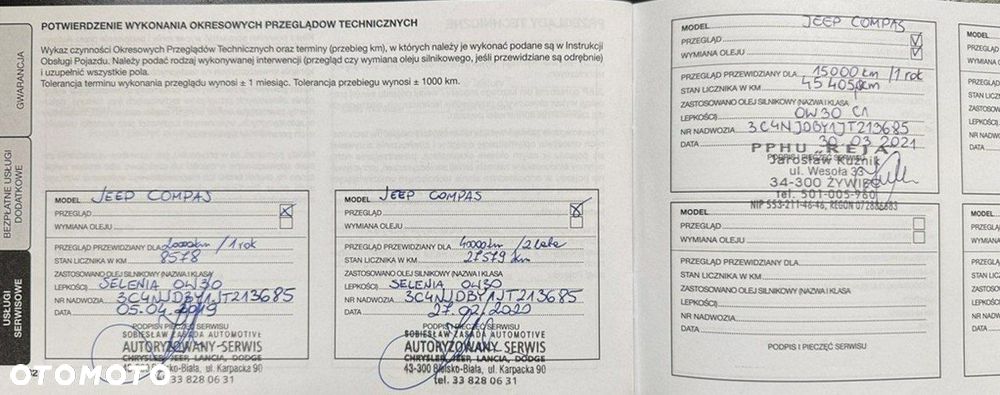 GWARANCJA
BEZPŁATNE USŁUGI
DODATKOWE
USŁUGI
SERWISOWE
POTWIERDZENIE WYKONANIA OKRESOWYCH PRZEGLĄDÓW TECHNICZNYCH
Wykaz czynności Okresowych Przeglądów Technicznych oraz terminy (przebieg km), w których należy je wykonać podane są w Instrukcji
Obsługi Pojazdu. Należy podać rodzaj wykonywanej interwencji (przegląd czy wymiana oleju silnikowego, jeśli przewidziane są odrębnie)
i uzupełnić wszystkie pola.
Tolerancja terminu wykonania przeglądu wynosi ± 1 miesiąc. Tolerancja przebiegu wynosi ± 1000 km.
MODEL JEEP COMPAS
PRZEGLĄD
WYMIANA OLEJU
PRZEGLĄD PRZEWIDZIANY DLA 20000km / 1 rok
STAN LICZNIKA W KM 8578
ZASTOSOWANO OLEJ SILNIKOWY (NAZWA I KLASA
LEPKOŚCI) SELENIA 0W30
NR NADWOZIA 3C4NJDBY1JT213685
DATA 05.04.2019
PODPIS I PIECZĘĆ SERWISU
SOBIESŁAW ZASADA AUTOMOTIVE
AUTORYZOWANY SERWIS
CHRYSLER, JEEP, LANCIA, DODGE
Bielsko-Biała, ul. Karpacka 90
33 828 06 31
MODEL JEEP COMPAS
PRZEGLĄD
WYMIANA OLEJU
PRZEGLĄD PRZEWIDZIANY DLA 40000km / 2 lata
STAN LICZNIKA W KM 27579 km
ZASTOSOWANO OLEJ SILNIKOWY (NAZWA I KLASA
LEPKOŚCI) SELENIA 0W30
NR NADWOZIA 3C4NJDBY1JT213685
DATA 27.02.2020
PODPIS I PIECZĘĆ SERWISU
SOBIESŁAW ZASADA AUTOMOTIVE
AUTORYZOWANY SERWIS
CHRYSLER, JEEP, LANCIA, DODGE
43-300 Bielsko-Biała, ul. Karpacka 90
tel. 33 828 06 31
MODEL JEEP COMPAS
PRZEGLĄD
WYMIANA OLEJU
PRZEGLĄD PRZEWIDZIANY DLA 15000km / 1 rok
STAN LICZNIKA W KM 45405km
ZASTOSOWANO OLEJ SILNIKOWY (NAZWA I KLASA
LEPKOŚCI) 0W30 C1
NR NADWOZIA 3C4NJDBY1JT213685
DATA 30 03 2021
PODPIS I PIECZĘĆ SERWISU
PPHU „REJA"
Jarosław Kuźnik
ul. Wesoła 33
34-300 ŻYWIEC
tel. 501-005-960
NIP 553-211-46-46, REGON 072886883
MODEL
PRZEGLĄD
WYMIANA OLEJU
PRZEGLĄD PRZEWIDZIANY DLA
STAN LICZNIKA W KM
ZASTOSOWANO OLEJ SILNIKOWY (NAZWA I KLASA
LEPKOŚCI)
NR NADWOZIA
DATA
PODPIS I PIECZĘĆ SERWISU
MODEL
PRZEGLĄD
WYMIANA
PRZEGLĄD
STAN LICZN
ZASTOSOW
LEPKOŚCI)
NR NADWO
DATA
MODEL
PRZEGLĄD
WYMIANA
PRZEGLĄD
STAN LICZ
ZASTOSOW
LEPKOŚCI
NR NADW
DATA
OTOMOTO